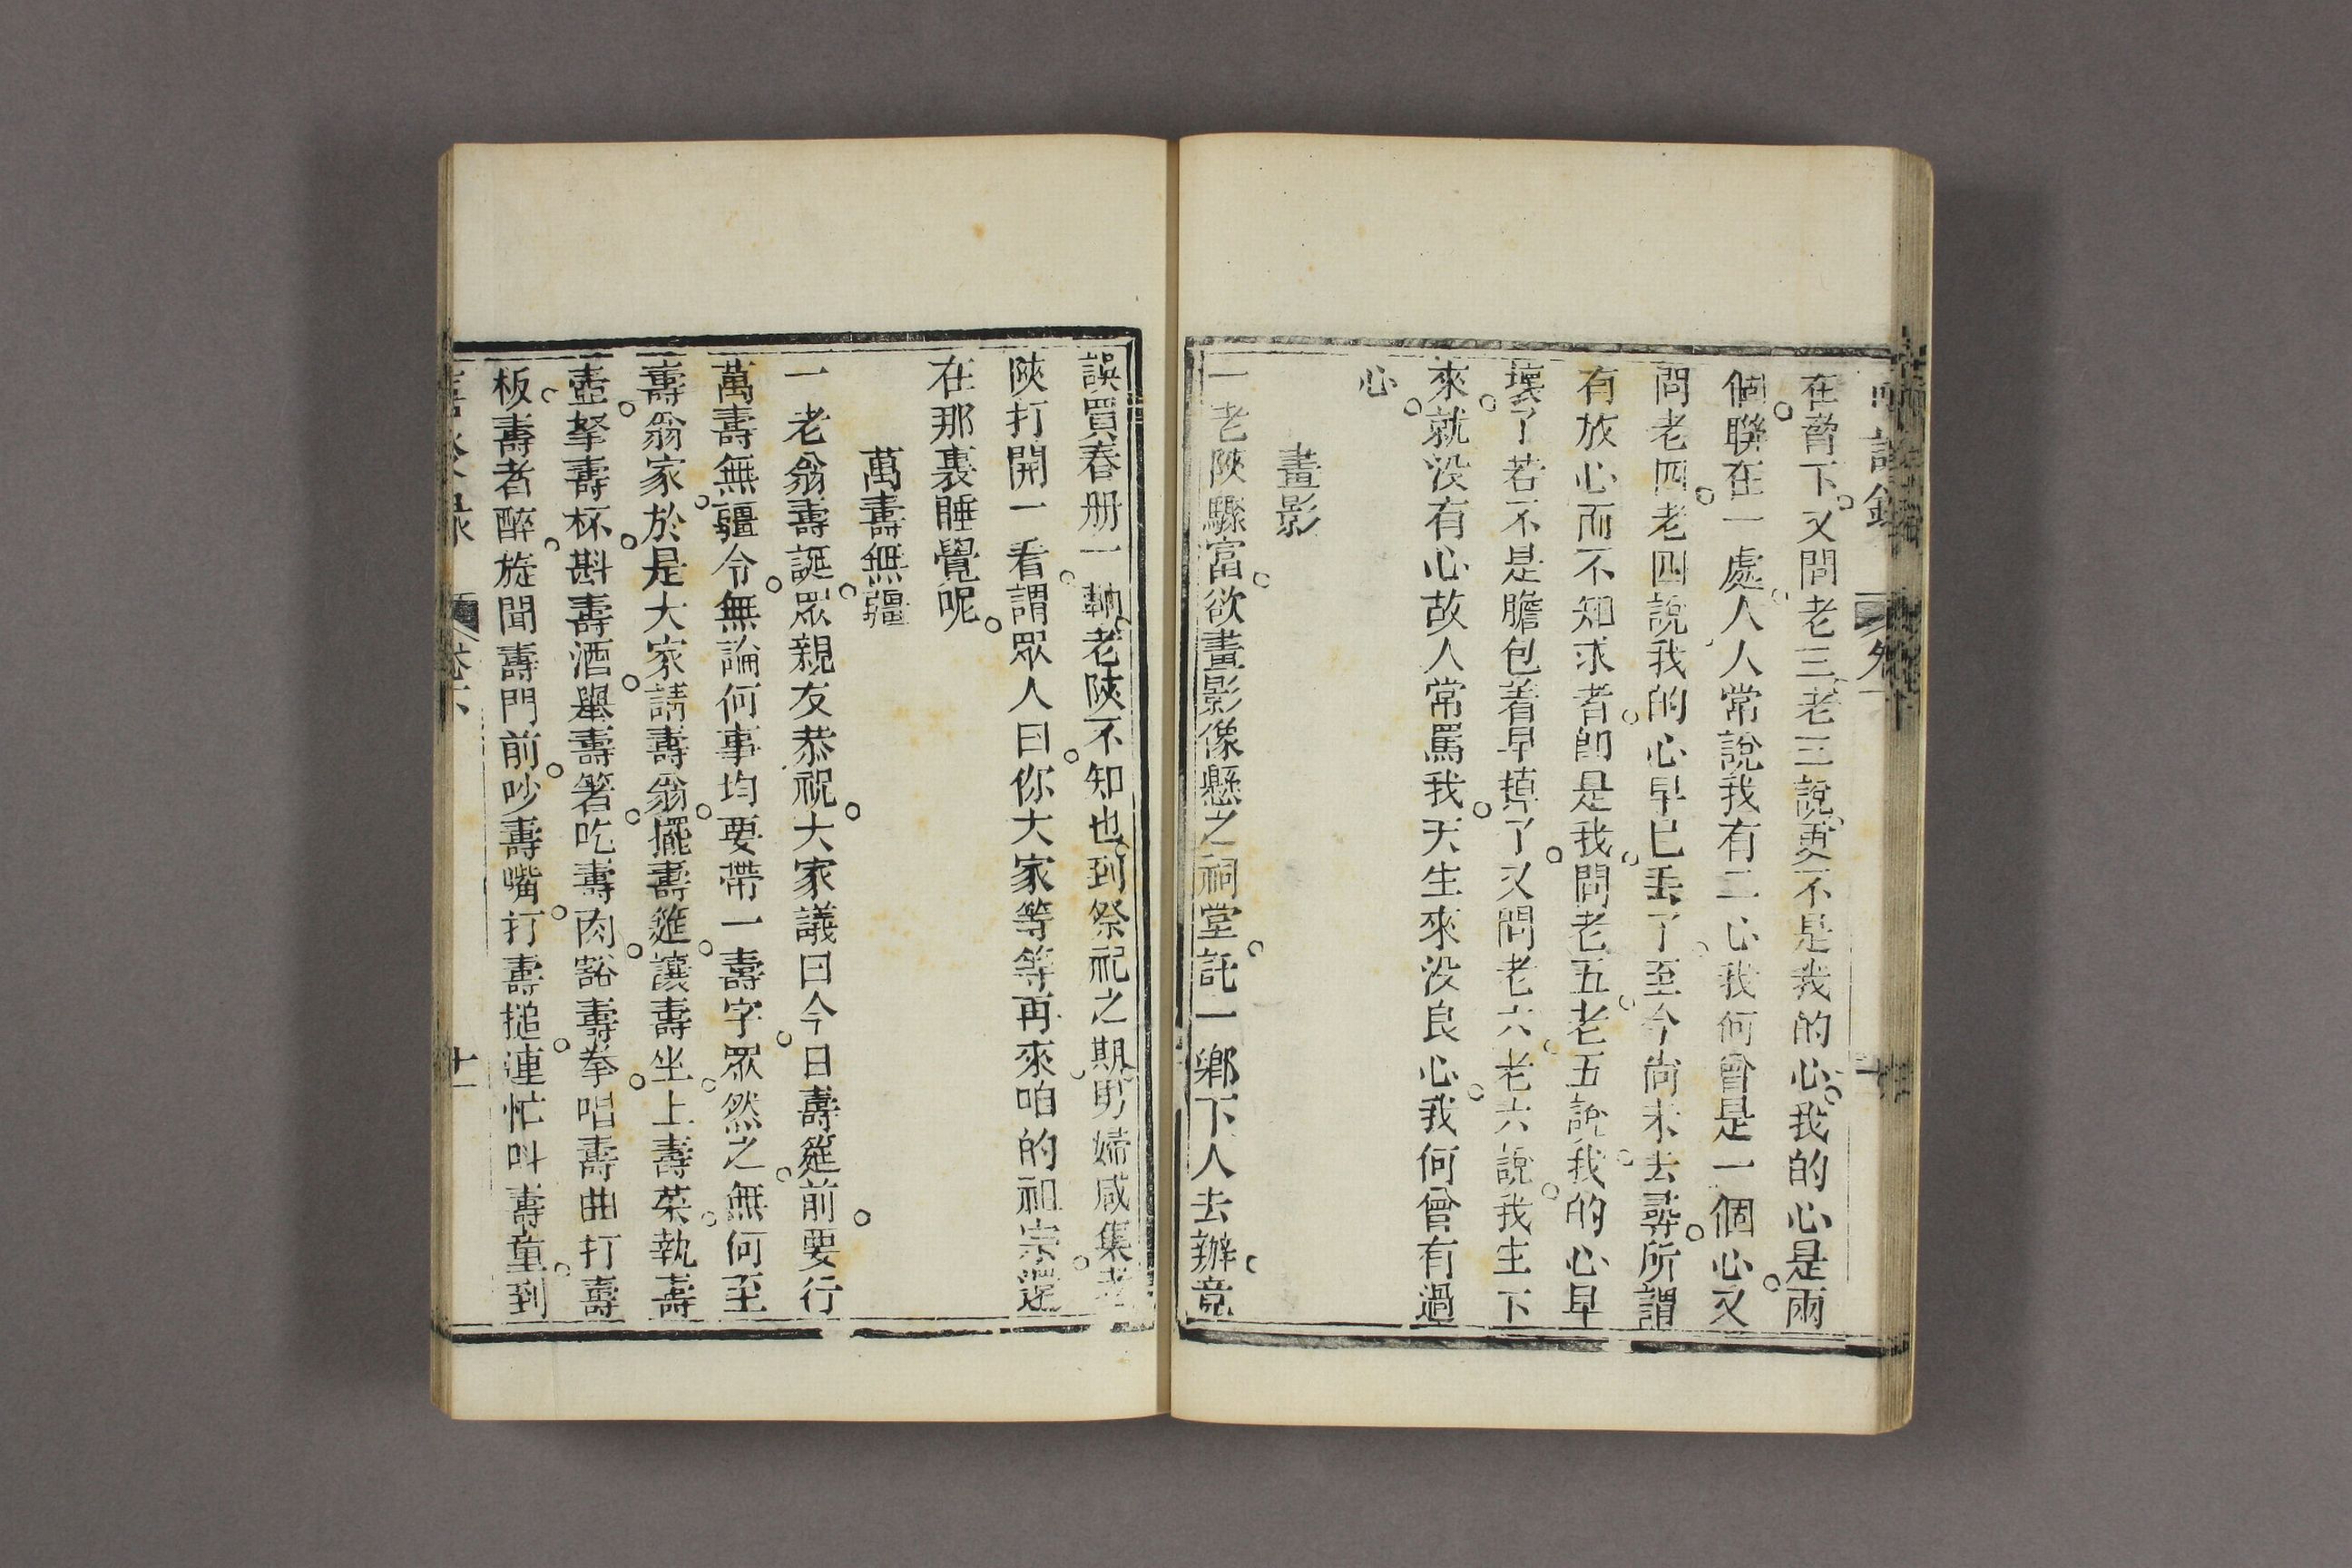 在脅下又問老三老三說更不是我的心我的心是兩
個聯在一處人人常說我有二心我何曾是一個心又
問老四老四說我的心早已丟了至今尚未去尋所謂
有放心而不知求者卽是我問老五老五說我的心早
壞了若不是膽包着早掉了又問老六老六說我生下
來就没有心故人常罵我天生來没良心我何曾有過
心
畫影
一老陝驟富欲畫影像懸之祠堂託一鄉下人去辦竟
誤買春册一軸老陝不知也到祭祀之期男婦咸集老
陝打開一看謂眾人曰你大家等等再來咱的祖宗還
在那裏睡覺呢
萬壽無疆
一老翁壽誕眾親友恭祝大家議曰今日壽筵前要行
萬壽無疆令無論何事均要帶一壽字眾然之無何至
壽翁家於是大家請壽翁擺壽筵讓壽坐上壽菜執壽
壺拏壽杯斟壽酒舉壽箸吃壽肉豁壽拳唱壽曲打壽
板壽者醉旋聞壽門前吵壽嘴打壽搥連忙叫壽童到
卷下
十一